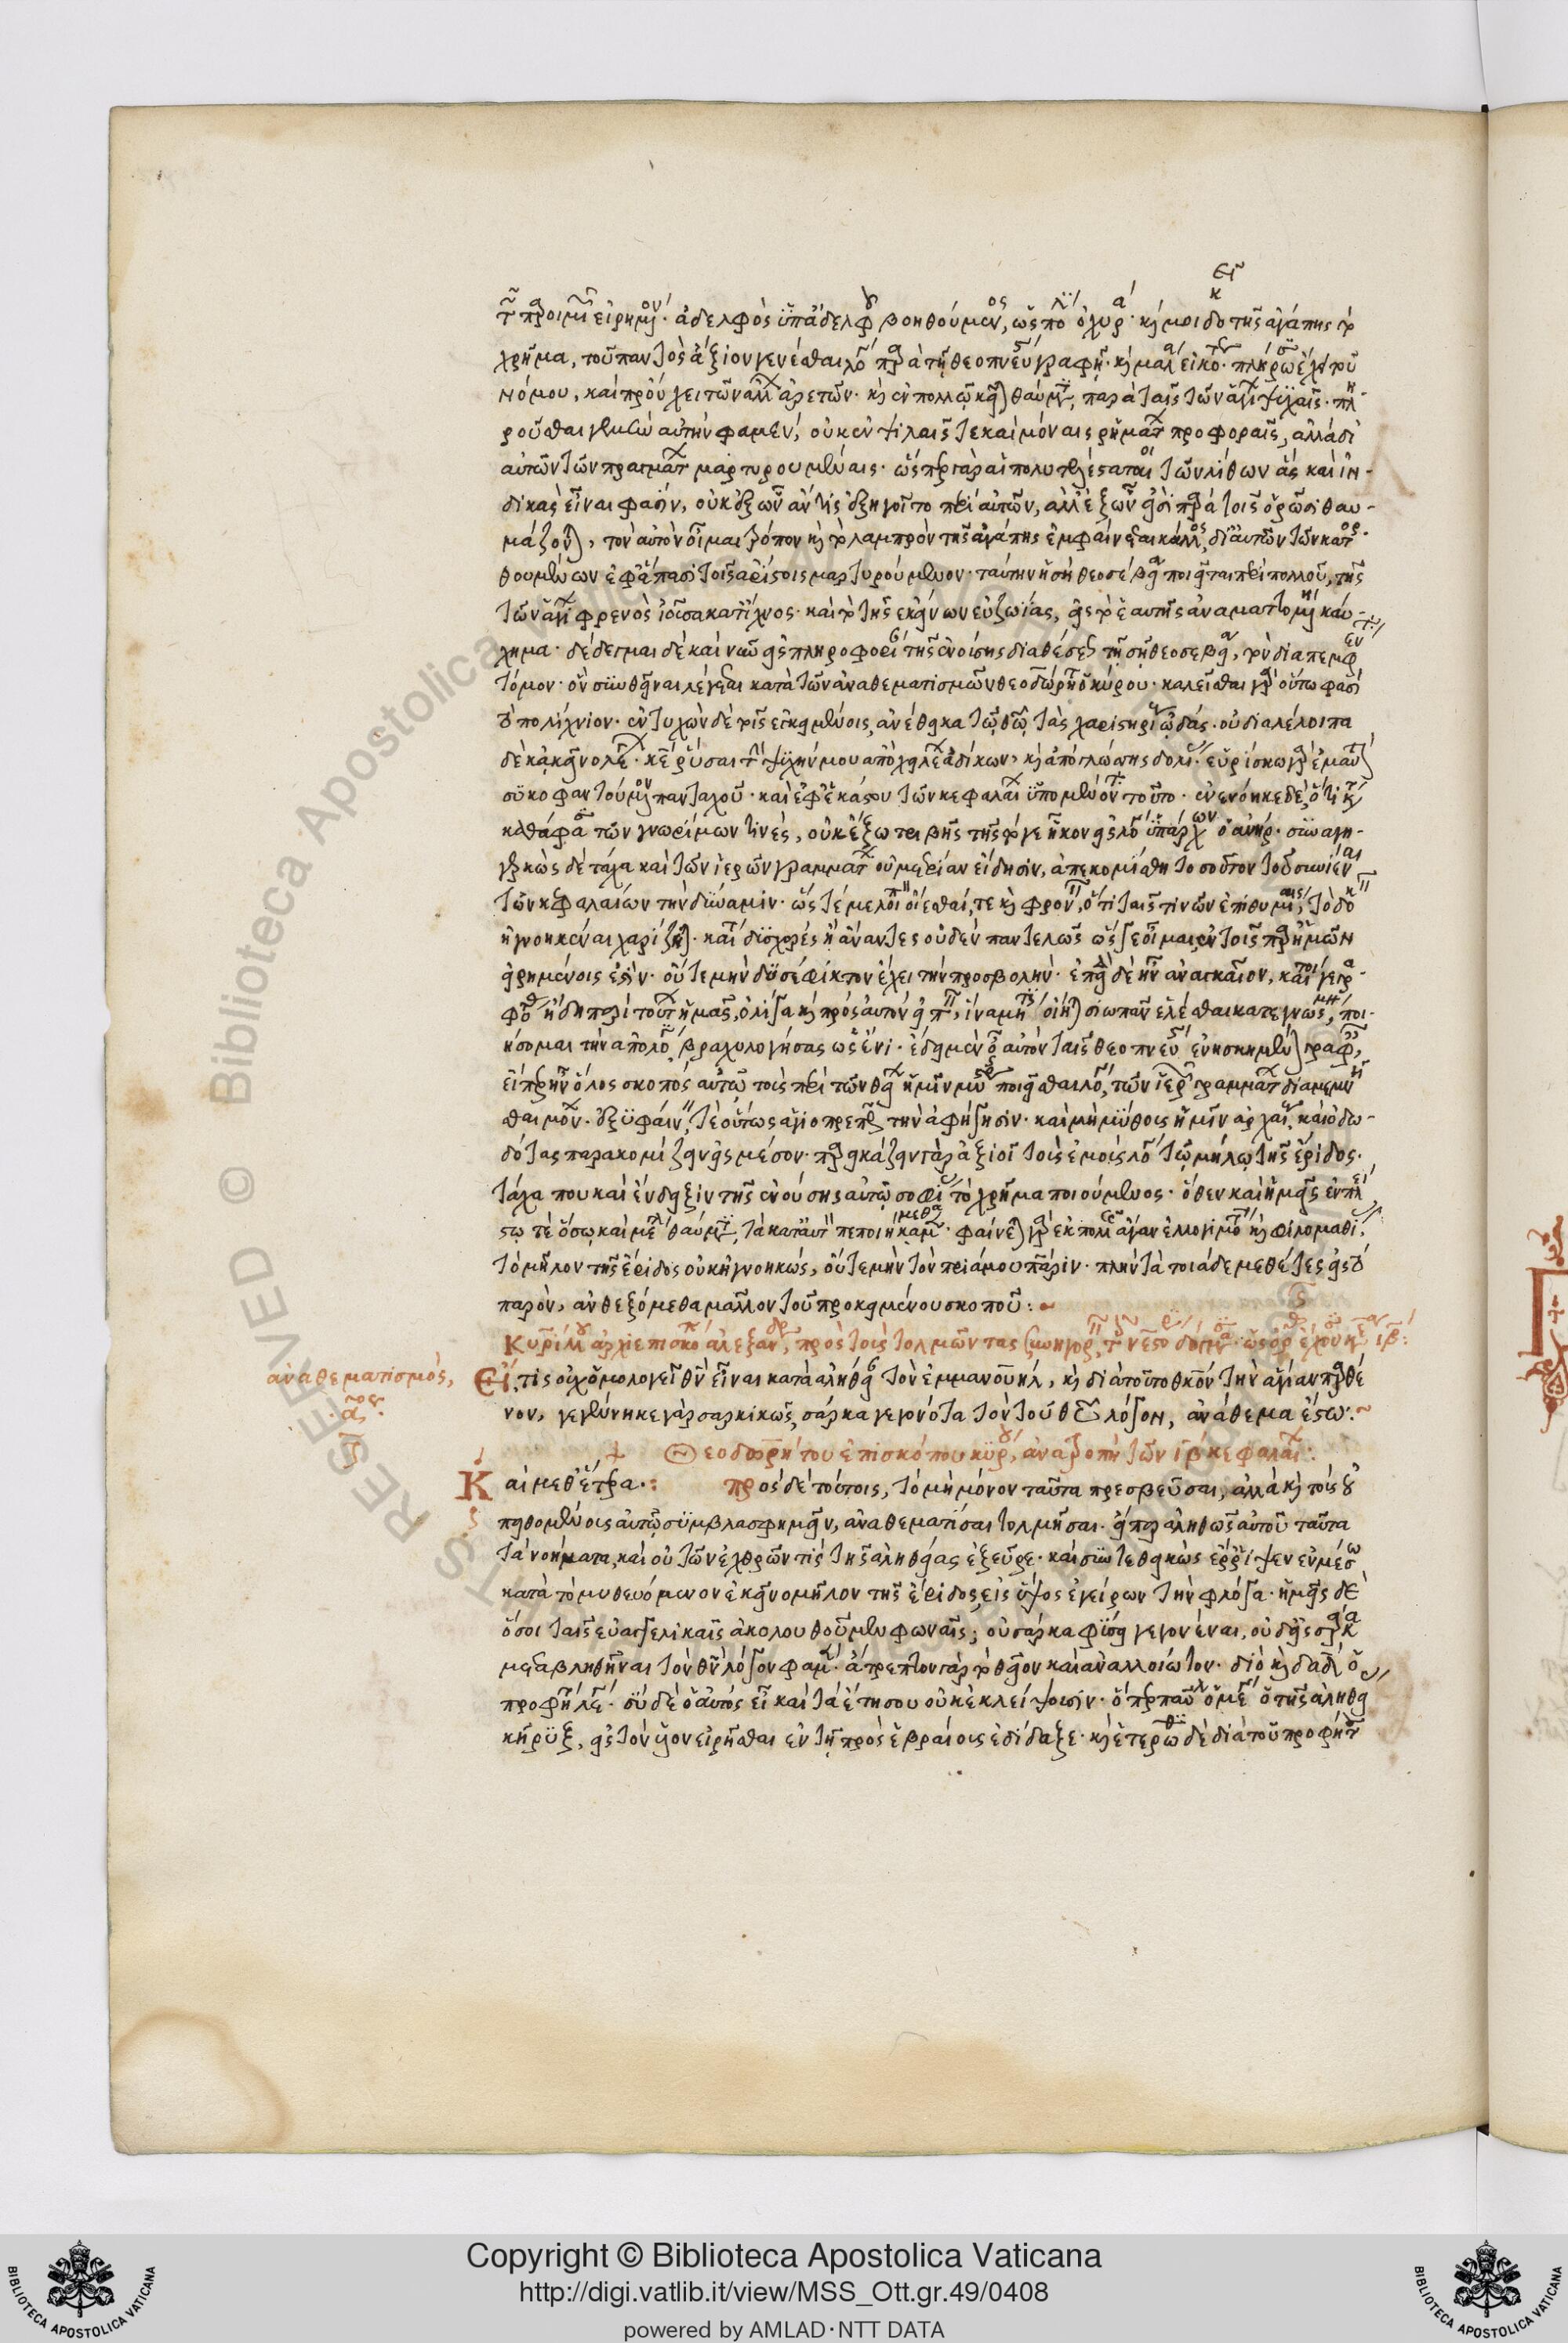 τ προιμι ειρημον· ἀδελφὸς ὑπ' ἀδελφοῦ βοηθούμενος, ὡς πόλις ὀχυρά· καί μοι δοκεῖ τῆς ἀγάπης τὸ
χρῆμα, τοῦ παντὸς ἄξιον γενέσθαι λόγου παρὰ τῇ θεοπνεύστῳ γραφῇ· καὶ μάλα εἰκότως· πλήρωσις ἐστὶ τοῦ
νόμου, καὶ προύχει τῶν ἄλλων ἀρετῶν· καὶ ἐν πολλῷ κεῖται θαύματι, παρὰ ταῖς τῶν ἁγίων ψυχαῖς· πλη
ροῦσθαι γεμὴν αὐτήν φαμεν, οὐκ ἐν ψιλαῖς τε καὶ μόναις ῥημάτων προφοραῖς, ἀλλὰ δι'
αὐτῶν τῶν πραγμάτων μαρτυρουμέναις· ὥσπερ γὰρ αἱ πολυτελέσταται τῶν λίθων ἃς καὶ ἰν-
δικὰς εἶναι φασίν, οὐκ ἐξ ὧν ἄν τις ἐξηγοῖτο περὶ αὐτῶν, ἀλλ' ἐξ ὧν εἰσὶ παρὰ τοῖς ὁρῶσι θαυ-
μάζονται, τὸν αὐτὸν οἶμαι τρόπον καὶ τὸ λαμπρὸν τῆς ἀγάπης ἐμφαίνεται κάλλος, δι' αὐτῶν τῶν κατορ-
θουμένων ἐφ' ἅπασι τοῖς ἀρίστοις μαρτυρούμενον· ταύτην ἡ σὴ θεοσέβεια ποιεῖται περὶ πολλοῦ, τῆς
τῶν ἁγίων φρενὸς ἰοῦσα κατ' ἴχνος· καὶ τὸ τῆς ἐκείνων εὐζωίας, εἰς ἑαυτῆς ἀναματτομένη καύ-
χημα· δέδεγμαι δὲ καὶ νῦν εἰς πληροφορίαν τῆς ἐνούσης διαθέσεως τῇ σῇ θεοσεβείᾳ, τὸν διαπεμφθέντα
τόμον· ὃν συντεθεῖναι λέγεται κατὰ τῶν ἀναθεματισμῶν θεοδώρητος ὁ κύρου· καλεῖσθαι γὰρ οὕτω φασὶ
τὸ πολίχνιον· ἐντυχὼν δὲ τοῖς ἐγκειμένοις, ἀνέθηκα τῷ θεῷ τὰς χαριστηρίους ᾠδάς· οὐ διαλέλοιπα
δὲ κἀκεῖνο λέγων· κύριε ῥῦσαι τὴν ψυχήν μου ἀπὸ χειλέων ἀδίκων, καὶ ἀπὸ γλώσσης δολίας· εὑρίσκω γὰρ ἐμαυτὸν
συκοφαντούμενον πανταχοῦ· καὶ ἐφ' ἑκάστου τῶν κεφαλαίων ὑπομένοντα τοῦτο· ἐνενόηκε δὲ, ὅτι
καθά φασι τῶν γνωρίμων τινές, οὐκ ἔξω τριβῆς τῆς τό γε ἧκον εἰς λόγους ὑπάρχων ὁ ἀνήρ· συναγη-
γερκὼς δὲ τάχα καὶ τῶν ἱερῶν γραμμάτων οὐ μετρίαν εἴδησιν, ἀπεκομίσθη τοσοῦτον τοῦ συνιέναι
τῶν κεφαλαίων τὴν δύναμιν· ὥστέ με λοιπὸν οἴεσθαί τε καὶ φρονεῖν, ὅτι ταῖς τινῶν ἐπιθυμίαις, τὸ δοκεῖν
ἠγνοηκέναι χαρίζεται· καίτοι δυσχερὲς ἢ ἄναντες οὐδὲν παντελῶς ὥς γε οἶμαι, ἐν τοῖς παρ' ἡμῶν
εἰρημένοις ἐστίν· οὔτε μὴν δυσέφικτον ἔχει τὴν προσβολήν· ἐπειδὴ δὲ ἦν ἀναγκαῖον, καίτοι γεγρα-
φότας ἤδη περὶ τούτων ἡμᾶς, ὀλίγα καὶ πρὸς αὐτὸν εἰπεῖν, ἵνα μή τις οἴηται σιωπᾶν ἑλέσθαι κατεγνωσμένους, ποι-
ήσομαι τὴν ἀπολογίαν βραχυλογήσας ὡς ἔνι· ἔδει μὲν οὖν αὐτὸν ταῖς θεοπνεύστοις ἐνησκημένον γραφαῖς,
εἴπερ ἦν ὅλος σκοπὸς αὐτῷ τοῖς περὶ τῶν θείων ἡμῖν μυστηρίων ποιεῖσθαι λόγους, τῶν ἱερῶν γραμμάτων διαμεμνῆ
σθαι μόνων· ἐξυφαίνειν τὲ οὕτως ἁγιοπρεπῶς τὴν ἀφήγησιν· καὶ μὴ μύθους ἡμῖν ἀρχαίους καὶ ὀδω-
δότας παρακομίζειν εἰς μέσον· παρεικάζειν γὰρ ἀξιοῖ τοὺς ἐμοὺς λόγους τῷ μήλῳ τῆς ἔριδος·
τάχα που καὶ ἔνδειξιν τῆς ἐνούσης αὐτῷ σοφίας τὸ χρῆμα ποιούμενος· ὅθεν καὶ ἡμεῖς ἐν πλεί
στῳ τὲ ὅσῳ, καὶ μεγάλῳ θαύματι, τὰ κατ' αὐτὸν πεποιήμεθα· φαίνεται γὰρ ἐκ πολλῆς ἄγαν ἐλλογιμότητος καὶ φιλομαθίας
τὸ μῆλον τῆς ἔριδος οὐκ ἠγνοηκώς, οὔτε μὴν τὸν πριάμου πάριν· πλὴν τὰ τοιάδε μεθέντες εἰς τὸ
παρόν, ἀνθεξόμεθα μᾶλλον τοῦ προκειμένου σκοποῦ:
Κυρίλλου ἀρχιεπισκόπου ἀλεξανδρείας, πρὸς τοὺς τολμῶντας συνηγορεῖν τοῖς νεστορίου δόγμασιν· ὡς ὀρθῶς ἔχουσι κεφάλαια ιβ:
ἀναθεματισμὸς, α
Εἴ τις οὐχ ὁμολογεῖ θν εἶναι κατὰ ἀλήθειαν τὸν ἐμμανουήλ, καὶ διὰ τοῦτο θκον τὴν ἁγίαν παρθέ
νον, γεγέννηκε γὰρ σαρκικῶς, σάρκα γεγονότα τὸν τοῦ θυ λόγον, ἀνάθεμα ἔστω:
Θεοδωρήτου ἐπισκόπου κύρου, ἀνατροπὴ τῶν ιβ κεφαλαίων:
Καὶ μεθ' ἕτερα: πρὸς δὲ τούτοις, τὸ μὴ μόνον ταῦτα πρεσβεῦσαι, ἀλλὰ καὶ τοὺς οὐ
πειθομένους αὐτῷ συμβλασφημεῖν, ἀναθεματίσαι τολμῆσαι· εἴπερ ἀληθῶς αὐτοῦ ταῦτα
τὰ νοήματα, καὶ οὐ τῶν ἐχθρῶν τις τῆς ἀληθείας ἐξεῦρε· καὶ συντεθεικὼς ἔρριψεν ἐν μέσῳ
κατὰ τὸ μυθευόμενον ἐκεῖνο μῆλον τῆς ἔριδος, εἰς ὕψος ἐγείρων τὴν φλόγα· ἡμεῖς δὲ
ὅσοι ταῖς εὐαγγελικαῖς ἀκολουθοῦμεν φωναῖς, οὐ σάρκα φύσει γεγονέναι, οὐδ' εἰς σάρκα
μεταβληθῆναι τὸν θν λόγον φαμέν· ἄτρεπτον γὰρ τὸ θεῖον καὶ ἀναλλοίωτον· διὸ καὶ δαδ ὁ
προφήτης λέγει· σὺ δὲ ὁ αὐτὸς εἶ καὶ τὰ ἔτη σου οὐκ ἐκλείψουσιν· ὅπερ παῦλος ὁ μέγας ὁ τῆς ἀληθείας
κῆρυξ, εἰς τὸν υἱὸν εἰρῆσθαι ἐν τῇ πρὸς ἑβραίους ἐδίδαξε· καὶ ἑτέρωθι δὲ διὰ τοῦ προφήτου
RESERVED © Biblioteca Apostolica
Copyright © Biblioteca Apostolica Vaticana
http://digi.vatlib.it/view/MSS_Ott.gr.49/0408
powered by AMLAD·NTT DATA
BIBLIOTECA APOSTOLICA VATICANA
BIBLIOTECA APOSTOLICA VATICANA